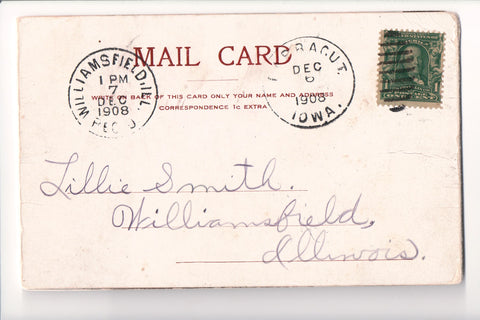 MAIL CARD
WRITE ON BACK OF THIS CARD ONLY YOUR NAME AND ADDRESS
CORRESPONDENCE 1c EXTRA
WILLIAMSFIELD, ILL.
1 PM
7
DEC
1908
REC'D.
RAGUT,
DEC
6
1908
IOWA.
1 1
Lillie Smith.
Williamsfield,
Illinois.